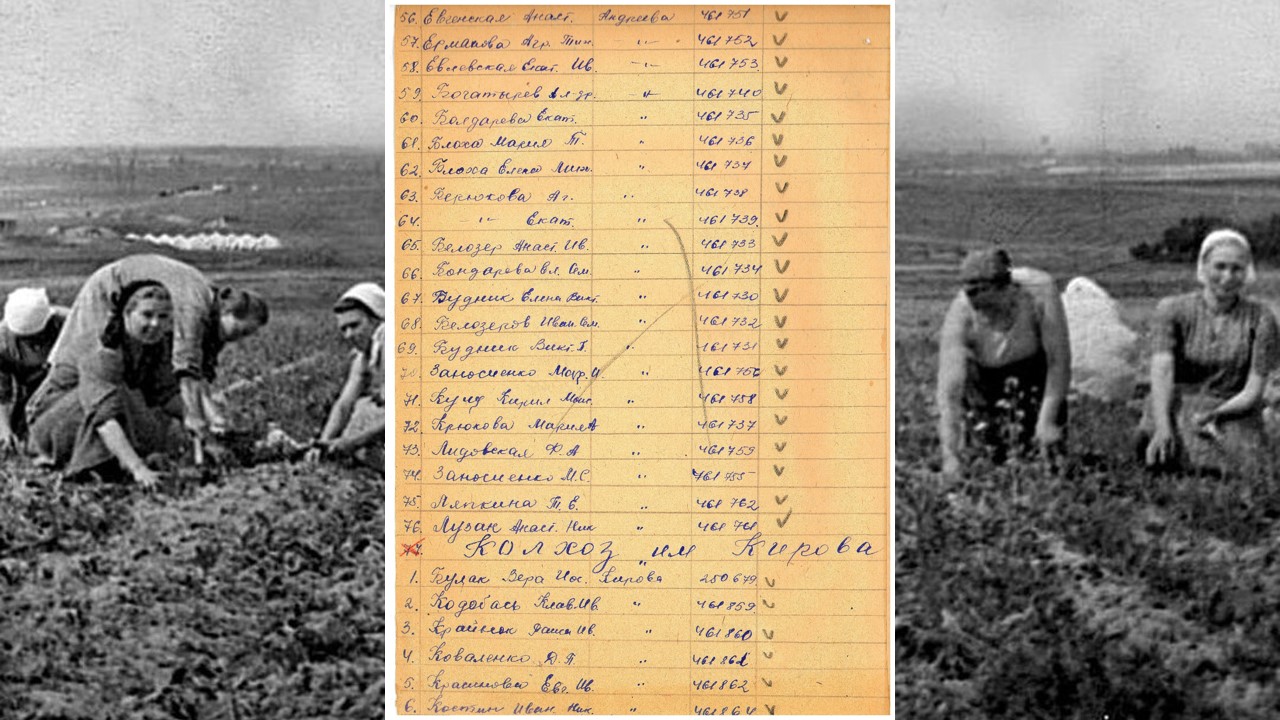 56. Евгенская Анаст. Андреева 461751 v
57. Ермакова Агр. Тим. -"- 461752 v
58. Евлевская Екат. Ив. -"- 461753 v
59. Богатырёв Ал-др. -"- 461740 v
60. Болдарева Екат. " 461735 v
61. Блоха Мария Т. " 461736 v
62. Блоха Елена " 461737 v
63. Берюкова Аг. " 461738 v
64. -"- Екат. " 461739 v
65. Белозер Анаст. Ив. " 461733 v
66. Бондарева Вл. Сем. " 461734 v
67. Будник Елена Викт. " 461730 v
68. Белозеров Иван Сем. " 461732 v
69. Будник Викт. П. " 461731 v
70. Заносиенко Мар. И. " v
71. Кулд Кирил " 461758 v
72. Крюкова Мария А " 461757 v
73. Лидовская Ф. А " 461759 v
74. Заносиенко М. С. " 461755 v
75. Ляпкина Т. Е. " 461762 v
76. Лузан Анаст. Ник " 461761 v
Колхоз "им Кирова
1. Булак Вера Иос. Кирова 250679 v
2. Кодобась Клав. Ив " 461859 v
3. Ив. " 461860 v
4. Коваленко Д. П " 461861 v
5. Евг. Ив. " 461862 v
6. Костин Иван Ник. " 461864 v